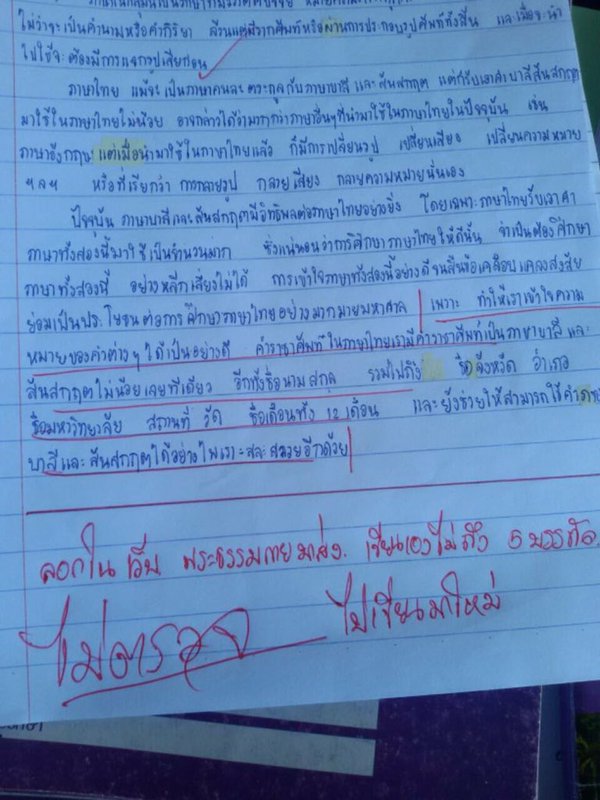 ไม่ว่าจะเป็นคำนามหรือคำกิริยา ล้วนแต่มีรากศัพท์หรือผ่านการประกอบรูปศัพท์ทั้งสิ้น และเมื่อจะนำ
ไปใช้จะต้องมีการแจกรูปเสียก่อน
ภาษาไทย แม้จะเป็นภาษาคนละตระกูลกับภาษาบาลี และสันสกฤต แต่ก็รับเอาคำบาลีสันสกฤต
มาใช้ในภาษาไทยไม่น้อย อาจกล่าวได้ว่ามากกว่าภาษาอื่นๆที่นำมาใช้ในภาษาไทยในปัจจุบัน เช่น
ภาษาอังกฤษ แต่เมื่อนำมาใช้ในภาษาไทยแล้ว ก็มีการเปลี่ยนรูป เปลี่ยนเสียง เปลี่ยนความหมาย
ฯลฯ หรือที่เรียกว่า การกลายรูป กลายเสียง กลายความหมายนั่นเอง
ปัจจุบัน ภาษาบาลีและสันสกฤตมีอิทธิพลต่อภาษาไทยอย่างยิ่ง โดยเฉพาะภาษาไทยรับเอาคำ
ภาษาทั้งสองนี้มาใช้เป็นจำนวนมาก ซึ่งแน่นอนว่าการศึกษาภาษาไทยให้ดีนั้น จำเป็นต้องศึกษา
ภาษาทั้งสองนี้ อย่างหลีกเลี่ยงไม่ได้ การเข้าใจภาษาทั้งสองนี้อย่างดีจนสิ้นข้อเคลือบแคลงสงสัย
ย่อมเป็นประโยชน์ต่อการศึกษาภาษาไทยอย่างมากมายมหาศาล เพราะ ทำให้เราเข้าใจความ
หมายของคำต่าง ๆ ได้เป็นอย่างดี คำราชาศัพท์ในภาษาไทยเรามีคำว่าราศัพท์เป็นภาษาบาลีและ
สันสกฤตไม่น้อยเลยทีเดียว อีกทั้งชื่อนามสกุล รวมไปถึง ชื่อจังหวัด อำเภอ
ชื่อมหาวิทยาลัย สถานที่ วัด ชื่อเดือนทั้ง 12 เดือน และยังช่วยให้สามารถใช้คำ
บาลีและสันสกฤตได้อย่างไพเราะสละสลวยอีกด้วย
ลอกใน เว็บ พระธรรมกายมาส่ง. เขียนเองไม่ถึง 5 บรรทัด.
ไม่ตรวจ ไปเขียนมาใหม่